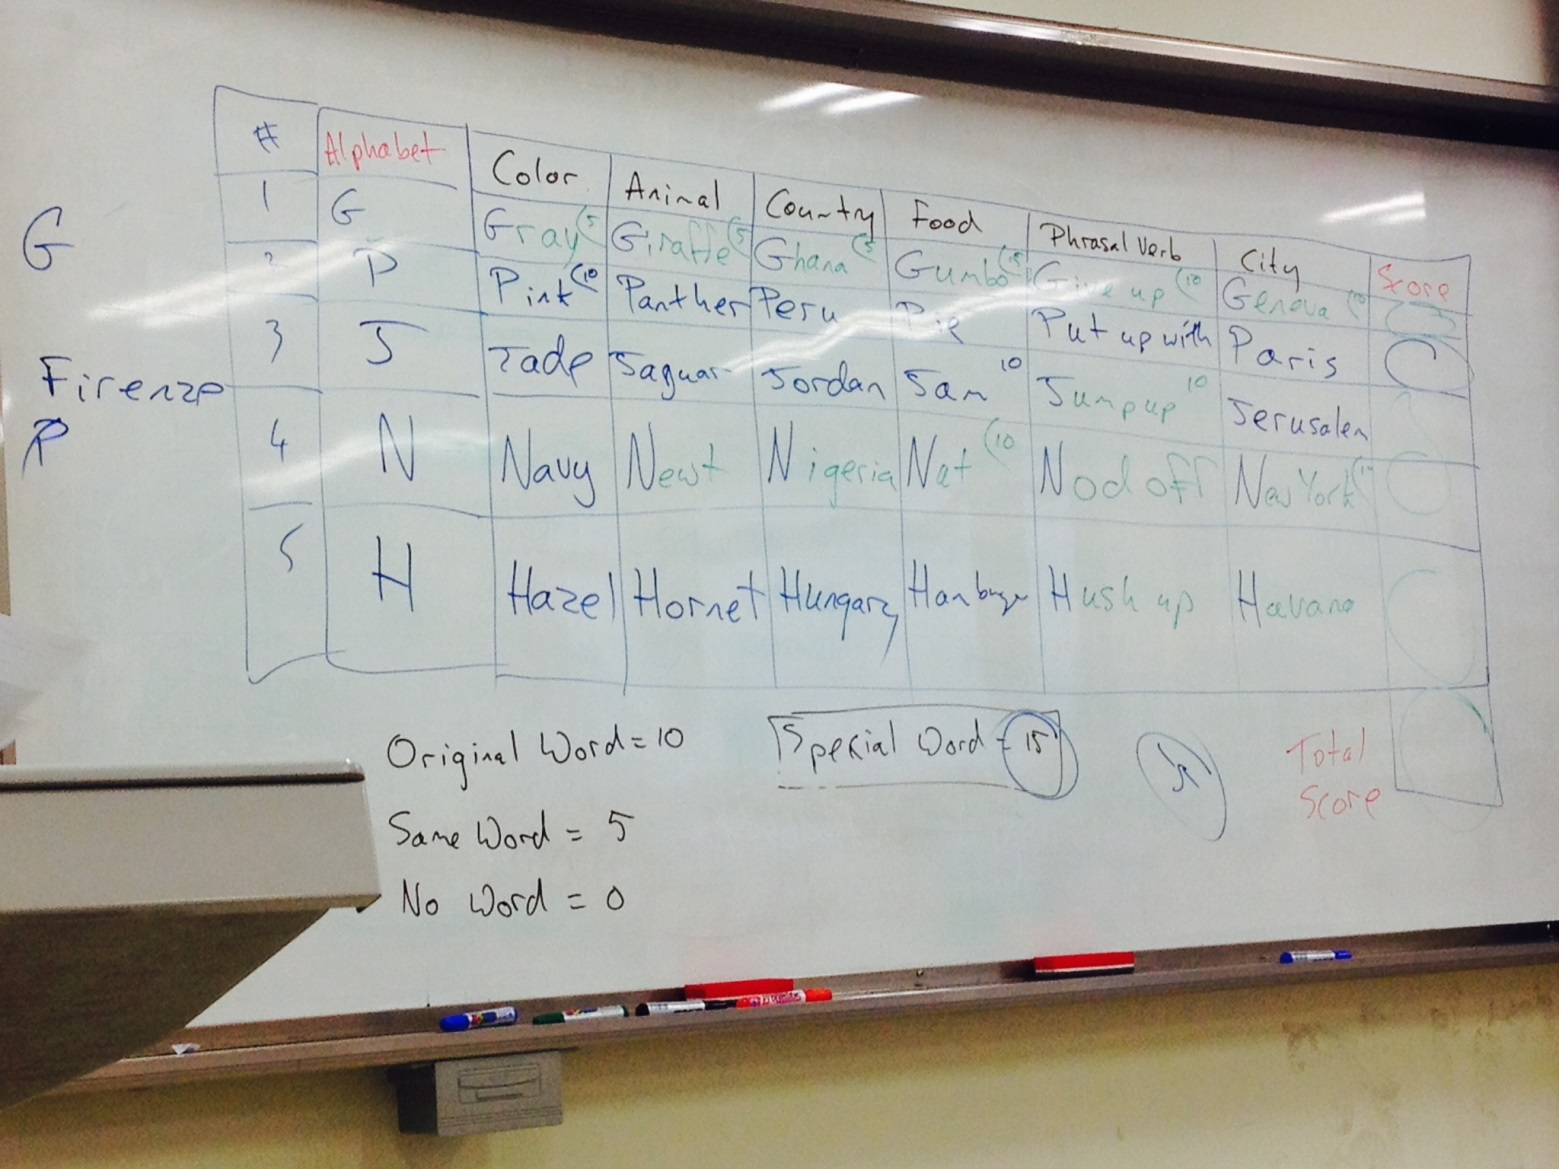 # Alphabet Color Animal Country Food Phrasal Verb City Score
1 G Gray (5 Giraffe (5 Ghana (5 Gumbo (15 Give up (10 Geneva (10
2 P Pink (10 Panther Peru Pie Put up with Paris
3 J Jade Jaguar Jordan Jam 10 Jump up 10 Jerusalem
4 N Navy Newt Nigeria Nut (10 Nod off New York
5 H Hazel Hornet Hungary Hamburger Hush up Havana
G
Firenze
P
Original Word = 10
Same Word = 5
No Word = 0
Special Word = 15
Total
Score